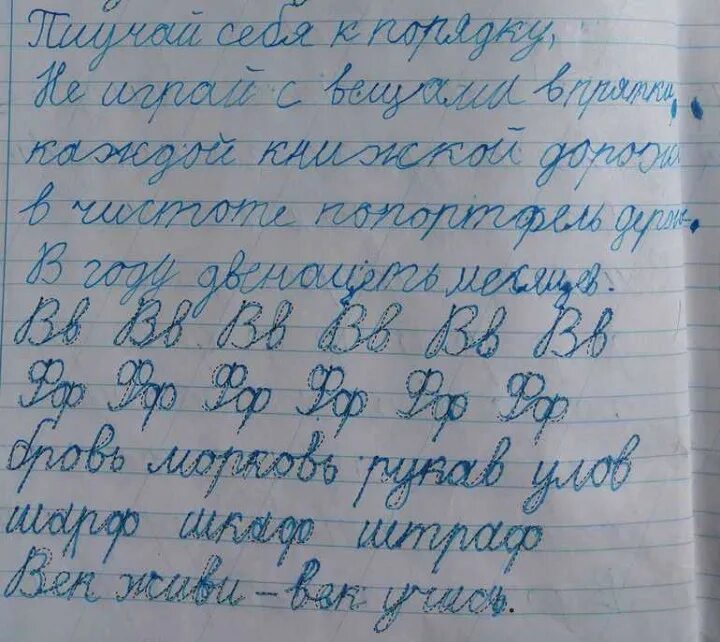 Пиучай себя к порядку,
Не играй с вещами в прятки,
каждой книжкой дорожи
в чистоте попортфель держи.
В году двенацеть месяцев.
Вв Вв Вв Вв Вв Вв
Фф Фф Фф Фф Фф Фф
бровь морковь рукав улов
шарф шкаф штраф
Век живи – век учись.